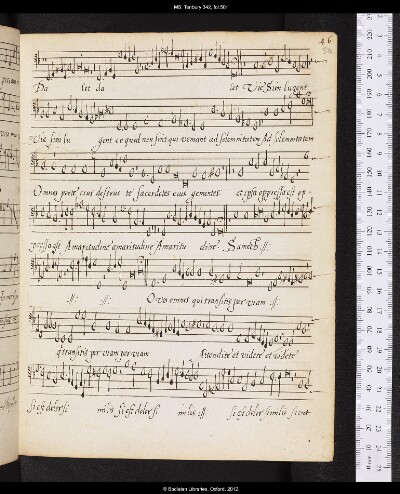 MS. Tenbury 342, fol.50r
46
50
Da let da let Viæ Sion lugent
Viæ sion lu gent eo quod non sint qui veniant ad solemnitatem Ad solemnitatem
Omnes portæ eius destruc te sacerdotes eius gementes et ipsa oppressa est op-
pressa est Amaritudine amaritudine Amaritu dine. Samech :||:
:||: :||: O vos omnes qui transitis per viam :||:
q transitis per viam per viam Attendite et videte et videte
Si est dolor si milis si est dolor si milis :||: si est dolor similis sicut
© Bodleian Libraries, Oxford, 2012